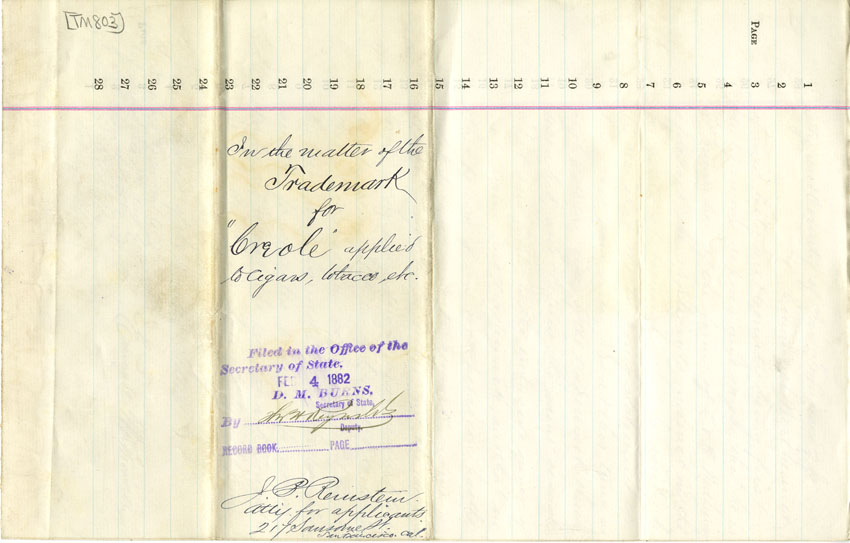 [TM803]
PAGE
1
2
3
4
5
6
7
8
9
10
11
12
13
14
15
16
17
18
19
20
21
22
23
24
25
26
27
28
In the matter of the
Trademark
for
"Creole" applied
to cigars, tobacco, etc.
Filed in the Office of the
Secretary of State.
FEB 4 1882
D. M. BURNS,
Secretary of State,
By
Deputy.
RECORD BOOK PAGE
J. B. Reinstein
atty for applicants
217 Sansome St.
San Francisco. Cal.